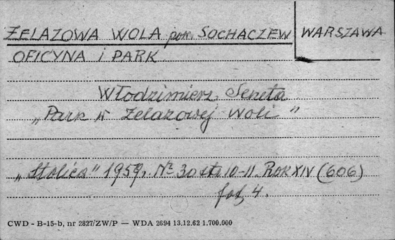 ŻELAZOWA WOLA pow. SOCHACZEW WARSZAWA
OFICYNA i PARK
Włodzimierz Seneta
„Park w Żelazowej Woli"
„Stolica" 1959, Nº 30 str. 10-11. ROK XIV (606)
fot. 4.
CWD - B-15-b, nr 2827/ZW/P — WDA 2694 13.12.62 1.700.000